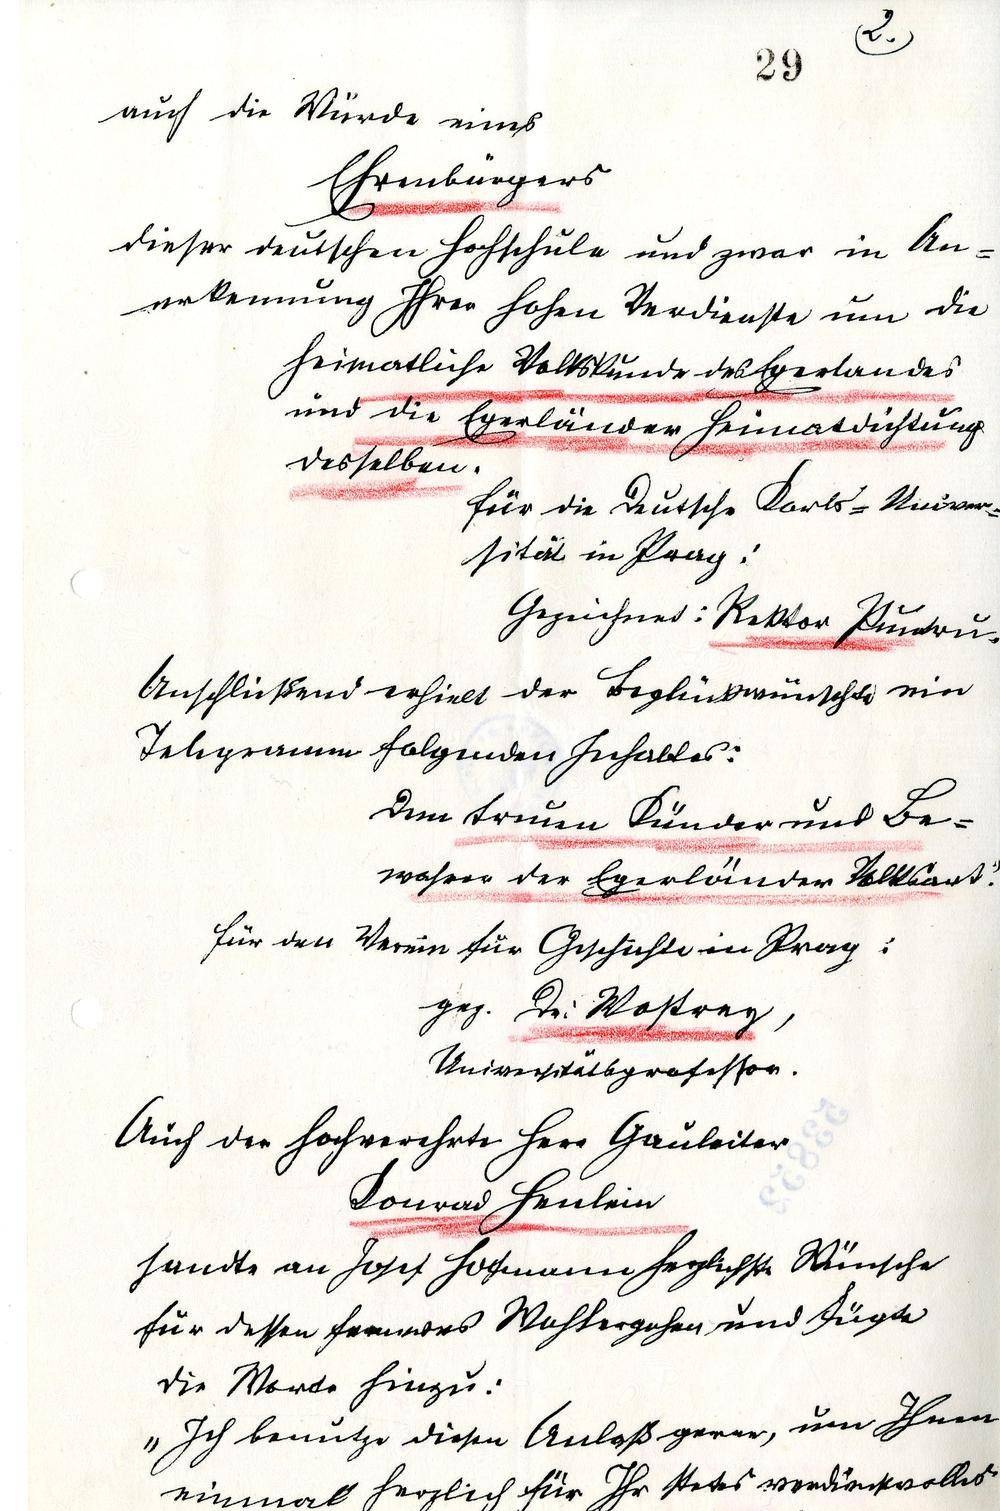 2.
29
auch die Würde eines
Ehrenbürgers
dieser deutschen Hochschule und zwar in An=
erkennung Ihrer hohen Verdienste um die
heimatliche Volkskunde des Egerlandes
und die Egerländer Heimatdichtung
desselben.
für die Deutsche Karls=Univer=
sität in Prag:
Gezeichnet: Rektor
Anschließend erhielt der Beglückwünschte ein
Telegramm folgenden Inhaltes:
Dem treuen Künder und Be=
wahrer der Egerländer Volksart".
für den Verein für Geschichte in Prag:
gez. Dr: Wostrey,
Universitätsprofessor.
Auch der hochverehrte Herr Gauleiter
Konrad Henlein
sandte an Josef Hofmann herzlichste Wünsche
für dessen ferneres Wohlergehen und fügte
die Worte hinzu:
„Ich benutze diesen Anlaß gerne, um Ihnen
einmal herzlich für Ihr stetes verdienstvolles
53853